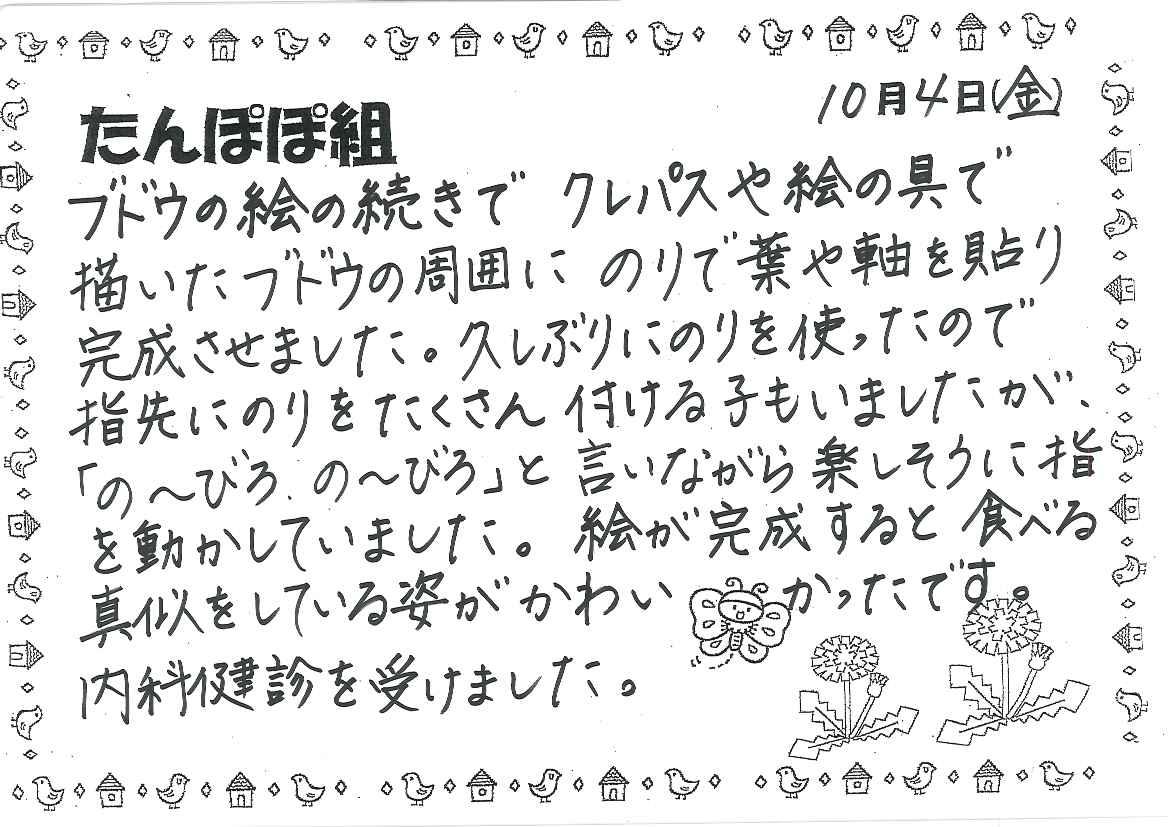 10月4日(金)
たんぽぽ組
ブドウの絵の続きで クレパスや絵の具で
描いたブドウの周囲に のりで葉や軸を貼り
完成させました。久しぶりにのりを使ったので
指先にのりをたくさん付ける子もいましたが、
「の～びろ、の～びろ」と言いながら楽しそうに指
を動かしていました。絵が完成すると食べる
真似をしている姿がかわいかったです。
内科健診を受けました。